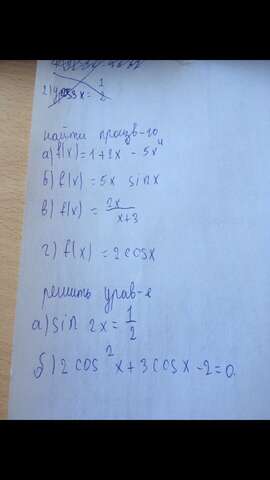 2) cos3x = 1/2
найти произв-ю
а) f(x) = 1+3x - 5x⁴
б) f(x) = 5x sinx
в) f(x) = 2x/x+3
г) f(x) = 2cosx
решить урав-е
а) sin 2x = 1/2
б) 2 cos²x + 3cosx - 2 = 0.